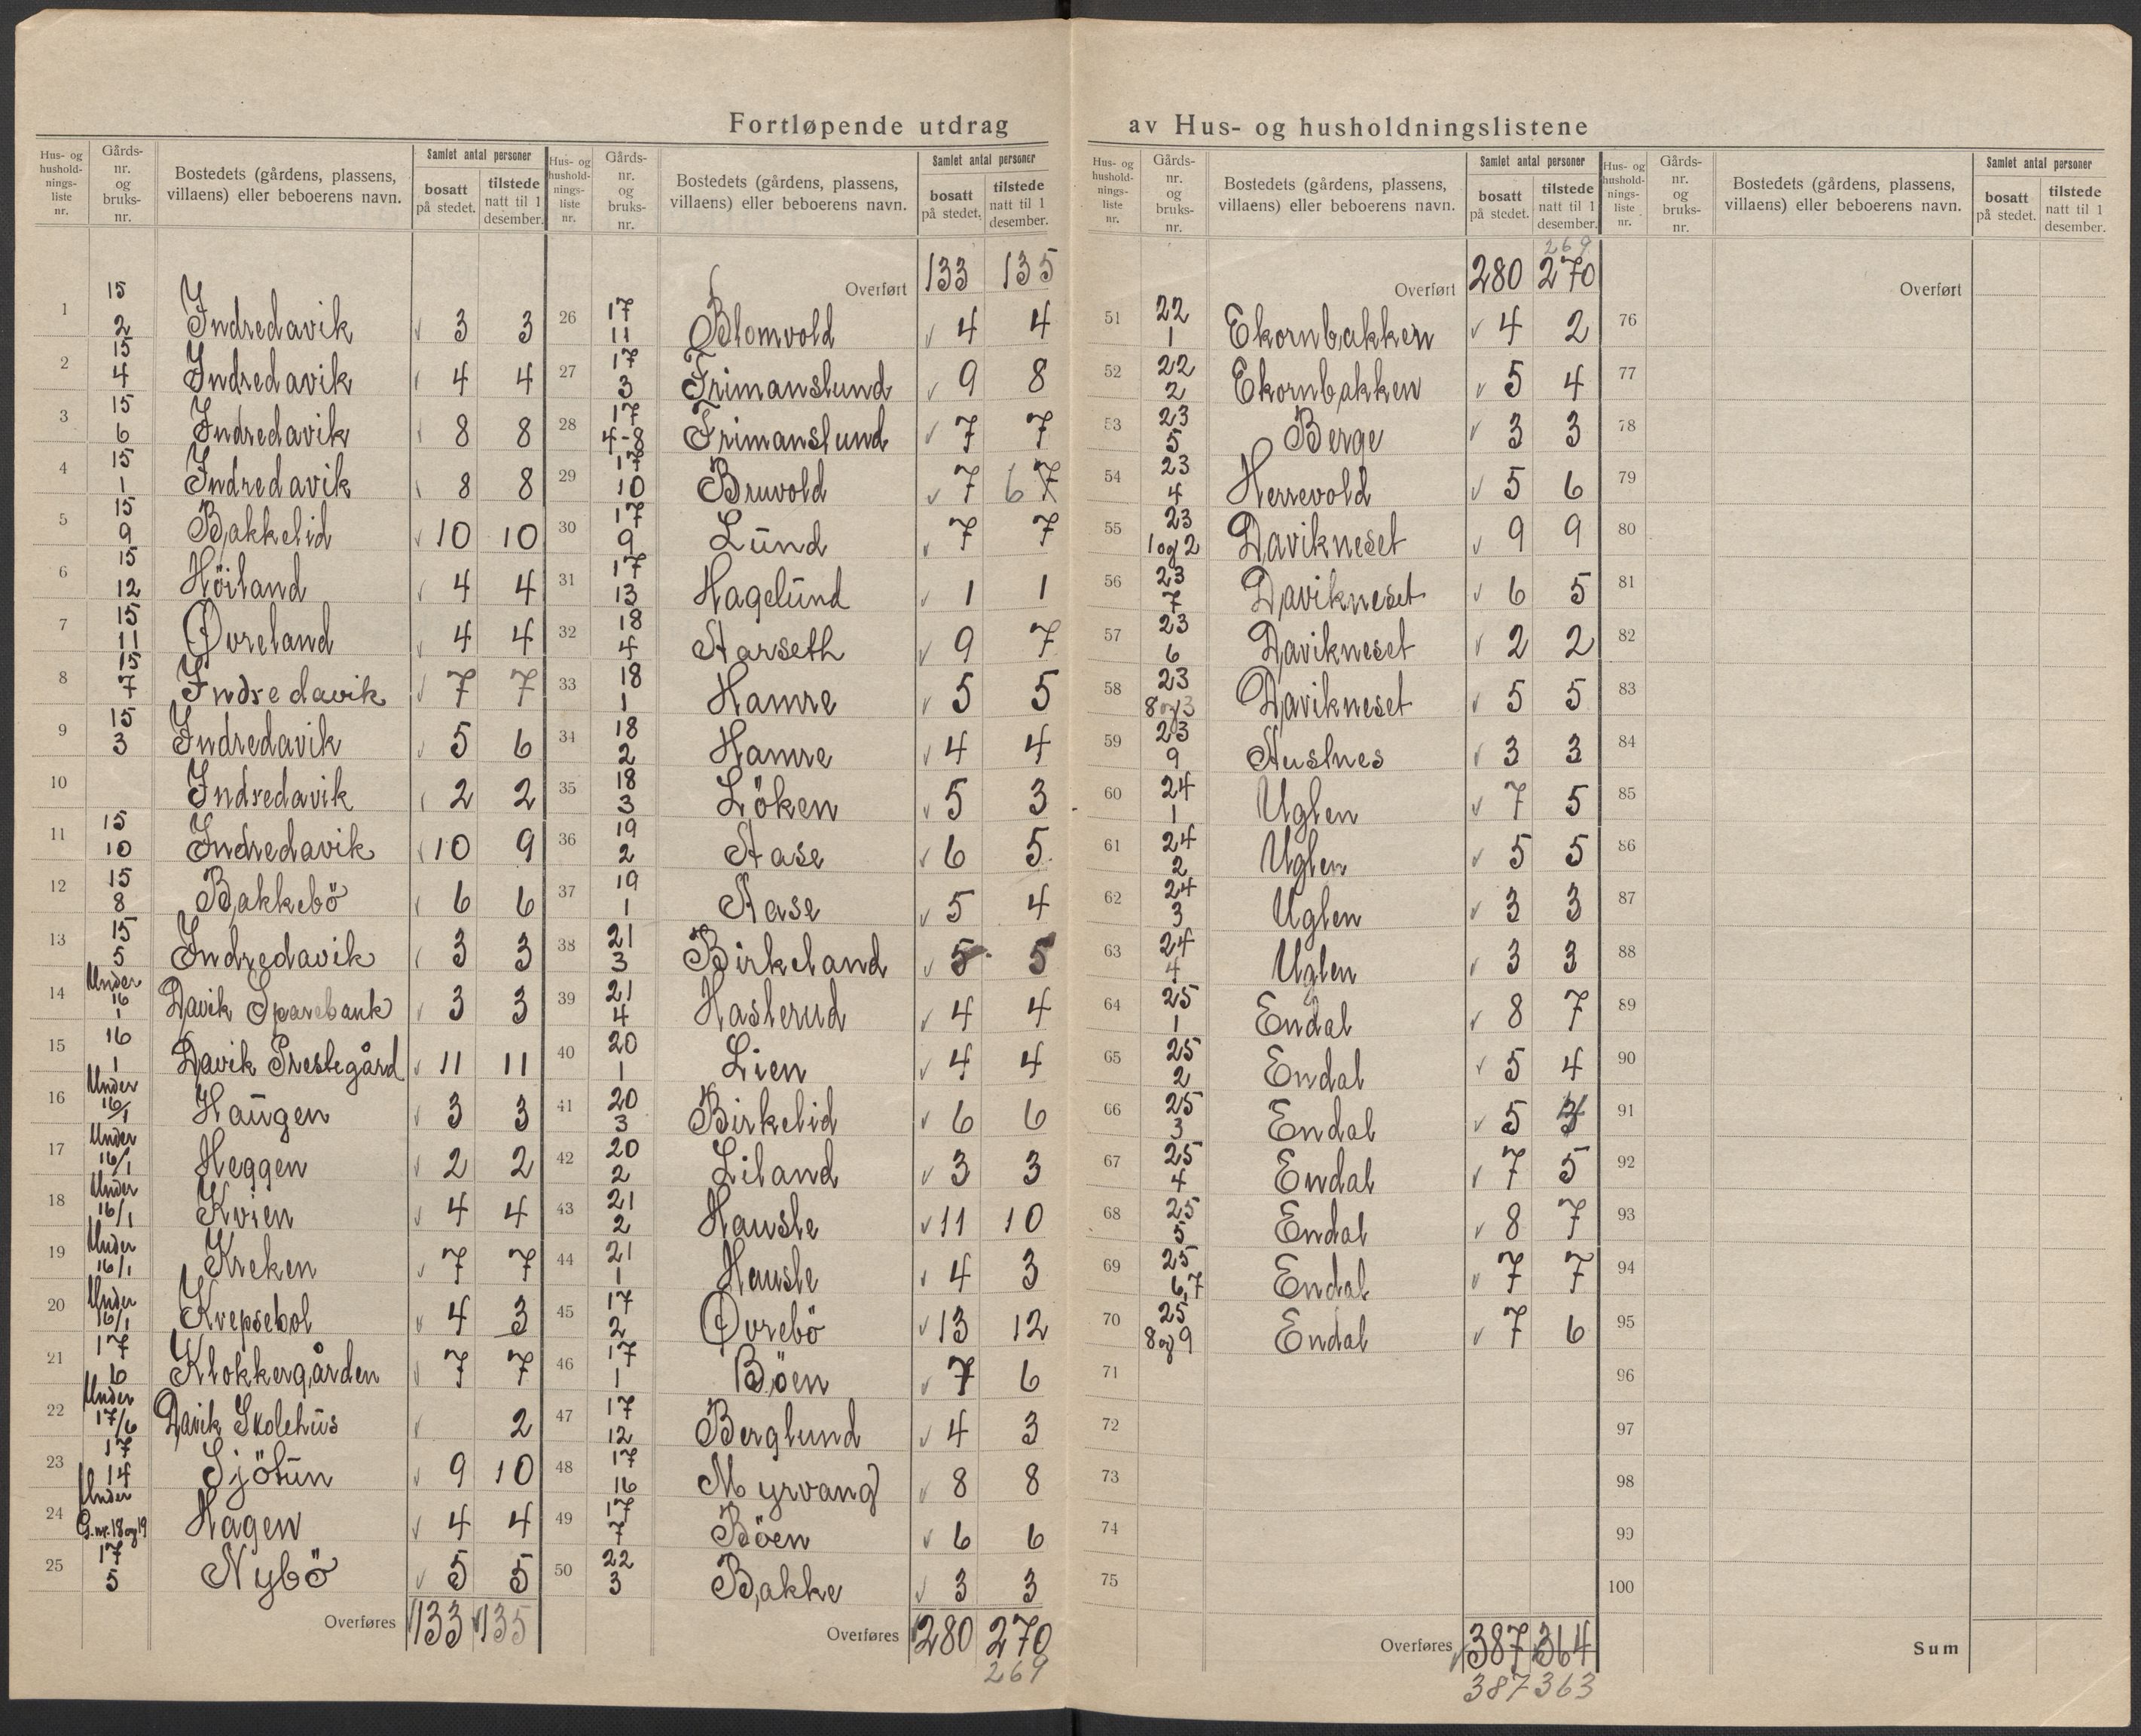 Fortløpende utdrag av Hus- og husholdningslistene
Hus- og hushold-nings-liste nr. Gårds-nr. og bruks-nr. Bostedets (gårdens, plassens, villaens) eller beboerens navn. Samlet antal personer bosatt på stedet. tilstede natt til 1 desember.
1 15 2 Indredavik 3 3
2 15 4 Indredavik 4 4
3 15 6 Indredavik 8 8
4 15 1 Indredavik 8 8
5 15 9 Bakkelid 10 10
6 15 12 Höiland 4 4
7 15 11 Øvreland 4 4
8 15 7 Indredavik 7 7
9 15 3 Indredavik 5 6
10 Indredavik 2 2
11 15 10 Indredavik 10 9
12 15 8 Bakkebö 6 6
13 15 5 Indredavik 3 3
14 Under 16 1 Davik Sparebank 3 3
15 16 1 Davik Prestegård 11 11
16 Under 16/1 Haugen 3 3
17 Under 16/1 Heggen 2 2
18 Under 16/1 Kvien 4 4
19 Under 16/1 Kreken 7 7
20 Under 16/1 Krepsebol 4 3
21 17 6 Klokkergården 7 7
22 Under 17/6 Davik Skolehus 2
23 17 14 Sjötun 9 10
24 Under G.nr. 18 og 19 Hagen 4 4
25 17 5 Nybö 5 5
Overføres 133 135
Hus- og hushold-nings-liste nr. Gårds-nr. og bruks-nr. Bostedets (gårdens, plassens, villaens) eller beboerens navn. Samlet antal personer bosatt på stedet. tilstede natt til 1 desember.
Overført 133 135
26 17 11 Blomvold 4 4
27 17 3 Frimanslund 9 8
28 17 4-8 Frimanslund 7 7
29 17 10 Bruvold 7 6 7
30 17 9 Lund 7 7
31 17 13 Hagelund 1 1
32 18 4 Aarseth 9 7
33 18 1 Hamre 5 5
34 18 2 Hamre 4 4
35 18 3 Löken 5 3
36 19 2 Aase 6 5
37 19 1 Aase 5 4
38 21 3 Birkeland 5 5
39 21 4 Haslerud 4 4
40 20 1 Lien 4 4
41 20 3 Birkelid 6 6
42 20 2 Liland 3 3
43 21 2 Hausle 11 10
44 21 1 Hausle 4 3
45 17 2 Øvrebö 13 12
46 17 1 Böen 7 6
47 17 12 Berglund 4 3
48 17 16 Myrvang 8 8
49 17 7 Böen 6 6
50 22 3 Bakke 3 3
Overføres 280 270
269
Hus- og hushold-nings-liste nr. Gårds-nr. og bruks-nr. Bostedets (gårdens, plassens, villaens) eller beboerens navn. Samlet antal personer bosatt på stedet. tilstede natt til 1 desember.
269
Overført 280 270
51 22 1 Ekornbakken 4 2
52 22 2 Ekornbakken 5 4
53 23 5 Berge 3 3
54 23 4 Herrevold 5 6
55 23 1 og 2 Davikneset 9 9
56 23 7 Davikneset 6 5
57 23 6 Davikneset 2 2
58 23 8 og 3 Davikneset 5 5
59 23 9 3 3
60 24 1 Uglen 7 5
61 24 2 Uglen 5 5
62 24 3 Uglen 3 3
63 24 4 Uglen 3 3
64 25 1 Endal 8 7
65 25 2 Endal 5 4
66 25 3 Endal 5
67 25 4 Endal 7 5
68 25 5 Endal 8 7
69 25 6,7 Endal 7 7
70 25 8 og 9 Endal 7 6
71
72
73
74
75
Overføres 387 364
387 363
Hus- og hushold-nings-liste nr. Gårds-nr. og bruks-nr. Bostedets (gårdens, plassens, villaens) eller beboerens navn. Samlet antal personer bosatt på stedet. tilstede natt til 1 desember.
Overført
76
77
78
79
80
81
82
83
84
85
86
87
88
89
90
91
92
93
94
95
96
97
98
99
100
Sum